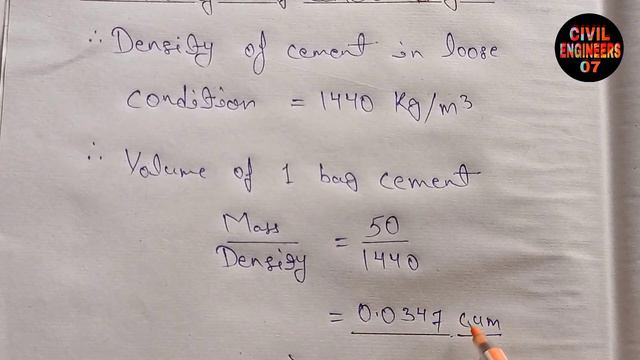 CIVIL
ENGINEERS
07
∴ Density of cement in loose
condition = 1440 Kg/m³
∴ Volume of 1 bag cement
Mass / Density = 50 / 1440
= 0.0347 cum